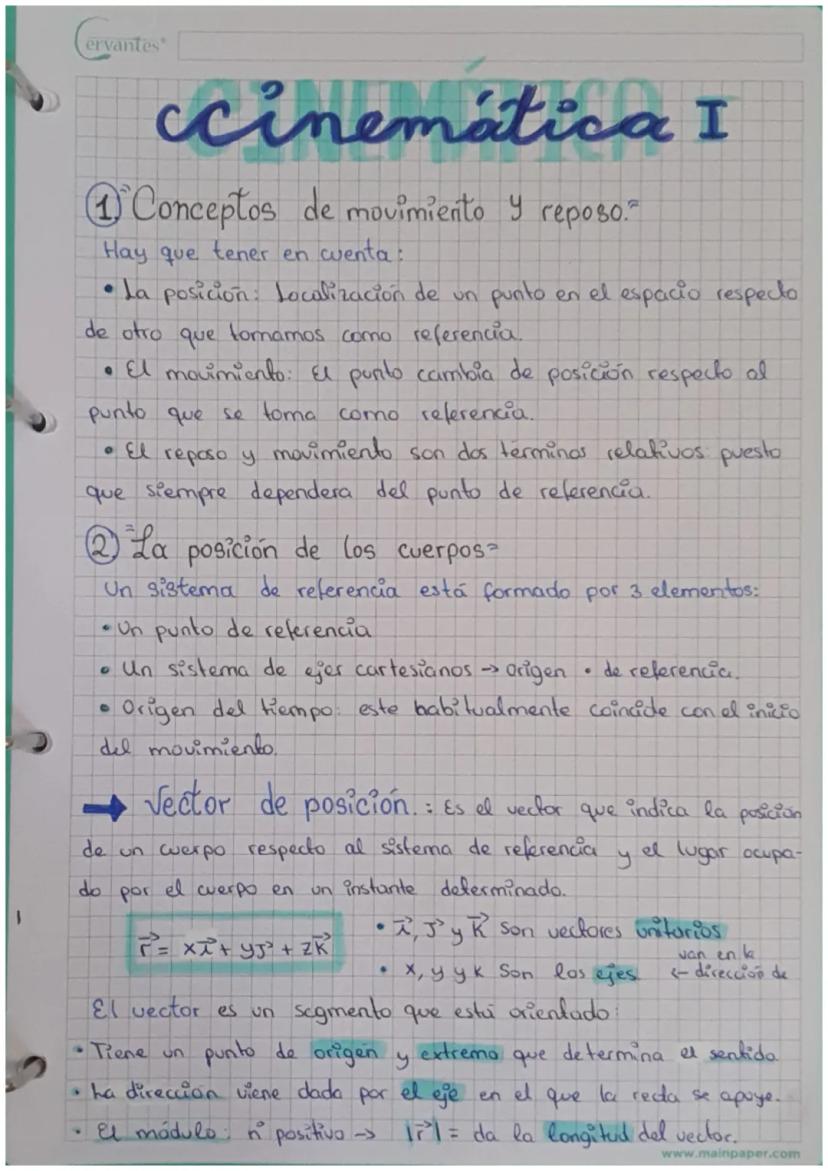 Cervantes
CINEMÁTICA
ccinemática I
① "Conceptos de movimiento y reposo."
Hay que tener en cuenta:
• La posición: Localización de un punto en el espacio respecto
de otro que tomamos como referencia.
• El movimiento: El punto cambia de posición respecto al
punto que se toma como referencia.
• El reposo y movimiento son dos términos relativos puesto
que siempre dependera del punto de referencia.
② "La posición de los cuerpos"
Un sistema de referencia está formado por 3 elementos:
• Un punto de referencia
• Un sistema de ejes cartesianos → origen • de referencia.
• Origen del tiempo: este habitualmente coincide con el inicio
del movimiento.
➡ Vector de posición.: Es el vector que indica la posición
de un cuerpo respecto al sistema de referencia y el lugar ocupa-
do por el cuerpo en un instante determinado.
r⃗ = xi⃗ + yj⃗ + zk⃗
• i⃗, j⃗ y k⃗ son vectores unitarios
van en la
• x, y y k son los ejes ← dirección de
El vector es un segmento que está orientado:
• Tiene un punto de origen y extremo que determina el sentido
• La dirección viene dada por el eje en el que la recta se apoye.
• El módulo: nº positivo → |r⃗| = da la longitud del vector.
www.mainpaper.com